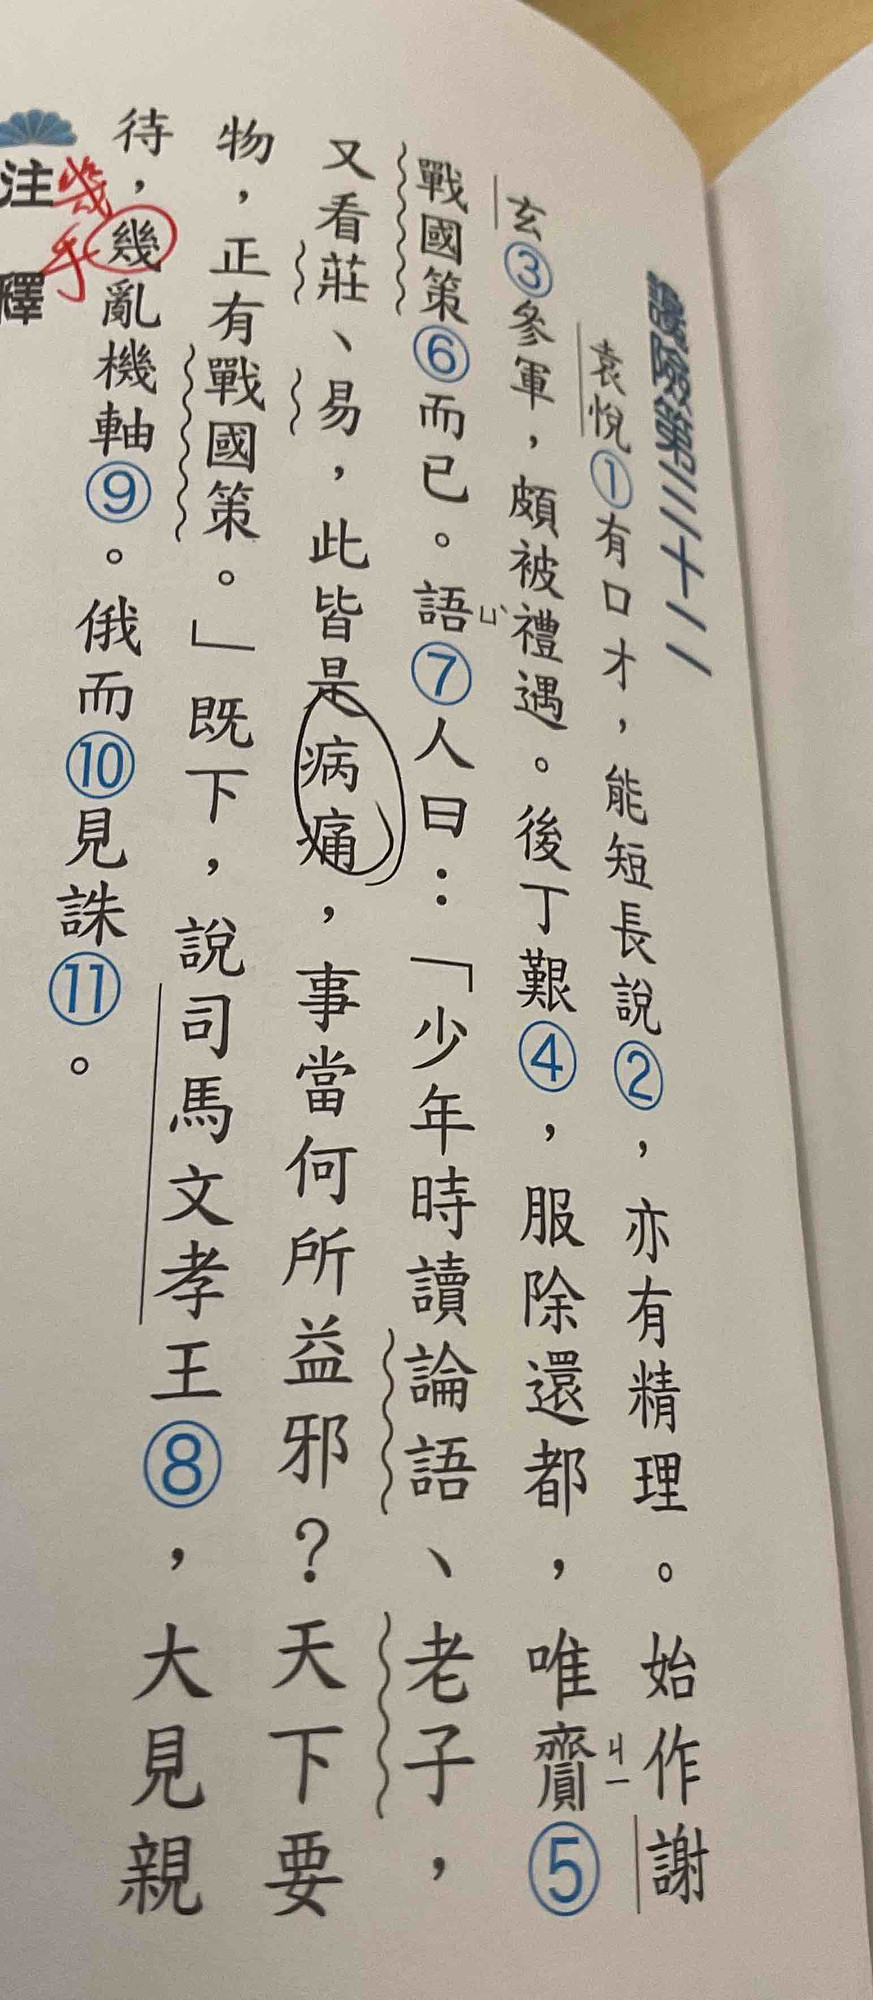 讒險第三十二
袁悅①有口才，能短長說②，亦有精理。始作謝
玄③參軍，頗被禮遇。後丁艱④，服除還都，唯齎⑤
ㄐㄧ
戰國策⑥而已。語⑦人曰：「少年時讀論語、老子，
ㄩˋ
又看莊、易，此皆是病痛，事當何所益邪？天下要
物，正有戰國策。」既下，說司馬文孝王⑧，大見親
待，幾亂機軸⑨。俄而⑩見誅⑪。
幾乎
注釋